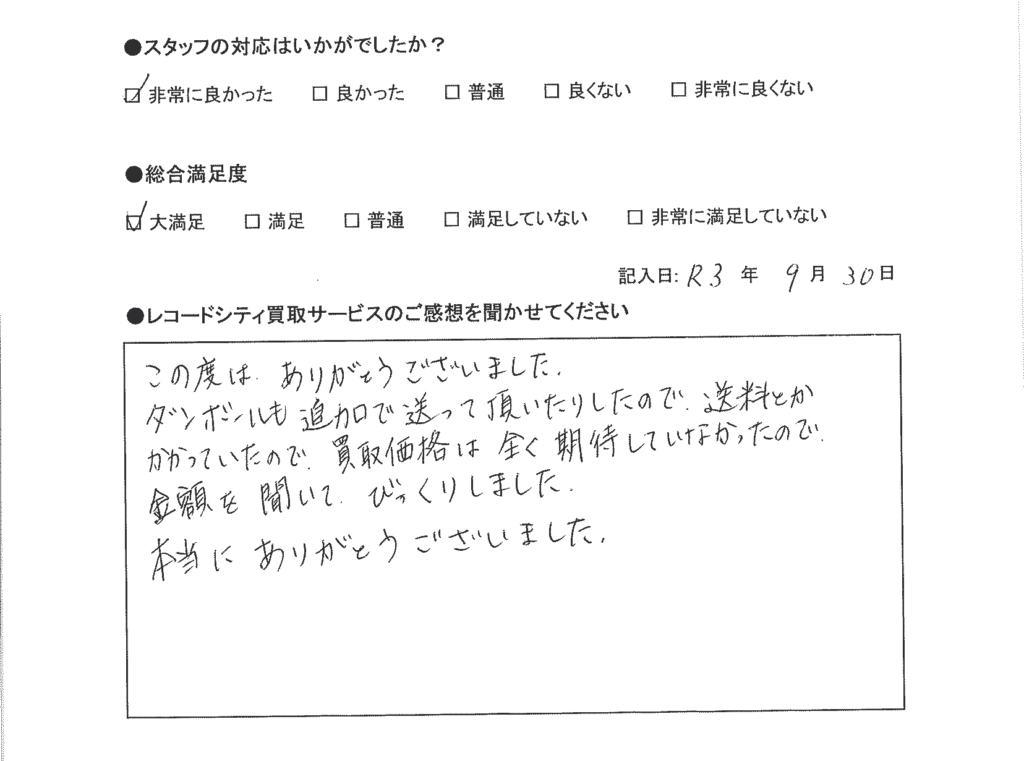 ●スタッフの対応はいかがでしたか？
☑ 非常に良かった □ 良かった □ 普通 □ 良くない □ 非常に良くない
●総合満足度
☑ 大満足 □ 満足 □ 普通 □ 満足していない □ 非常に満足していない
記入日: R3 年 9 月 30 日
●レコードシティ買取サービスのご感想を聞かせてください
この度は、ありがとうございました。
ダンボールも追加で送って頂いたりしたので、送料とか
かかっていたので、買取価格は全く期待していなかったので、
金額を聞いて、びっくりしました。
本当にありがとうございました。